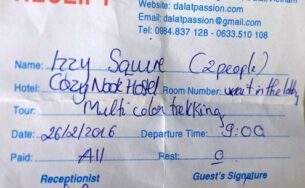 Website: dalatpassion.com
Email: dalatpassion@gmail.com
Tel: 0984.837 128 - 0633.510 108
Name: Izzy Squire (2 people)
Hotel: Cozy Nook Hostel Room Number: wait in the lobby
Tour: Multi color trekking
Date: 26/2/2016 Departure Time: 9:00
Paid: All Rest: 0
Receptionist Guest's Signature